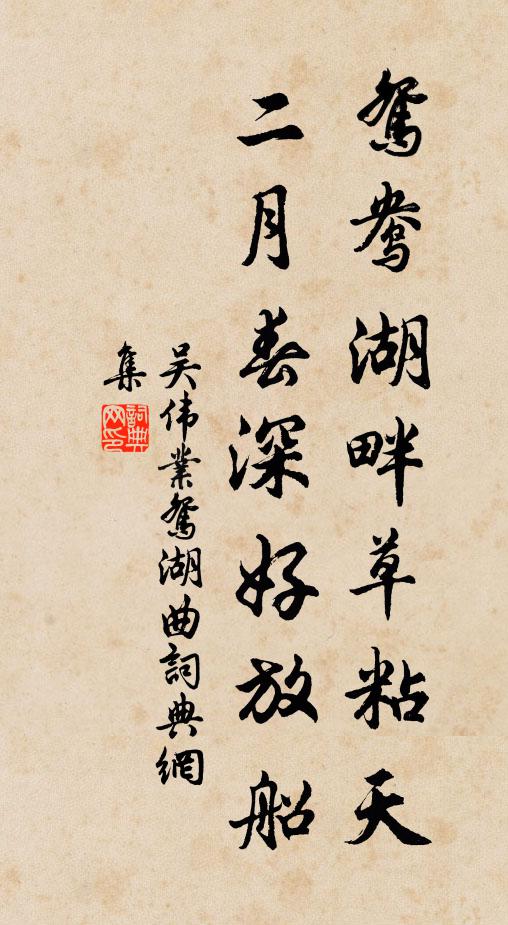 鴛鴦湖畔草粘天
二月春深好放船
吴伟業鴛湖曲詞典網
集
詞典
网印